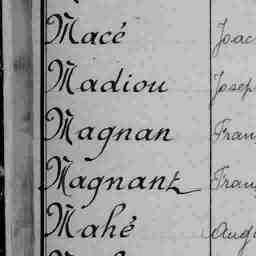 Macé Joac
Madiou Josep
Magnan Fran
Magnant Fran
Mahé Augu